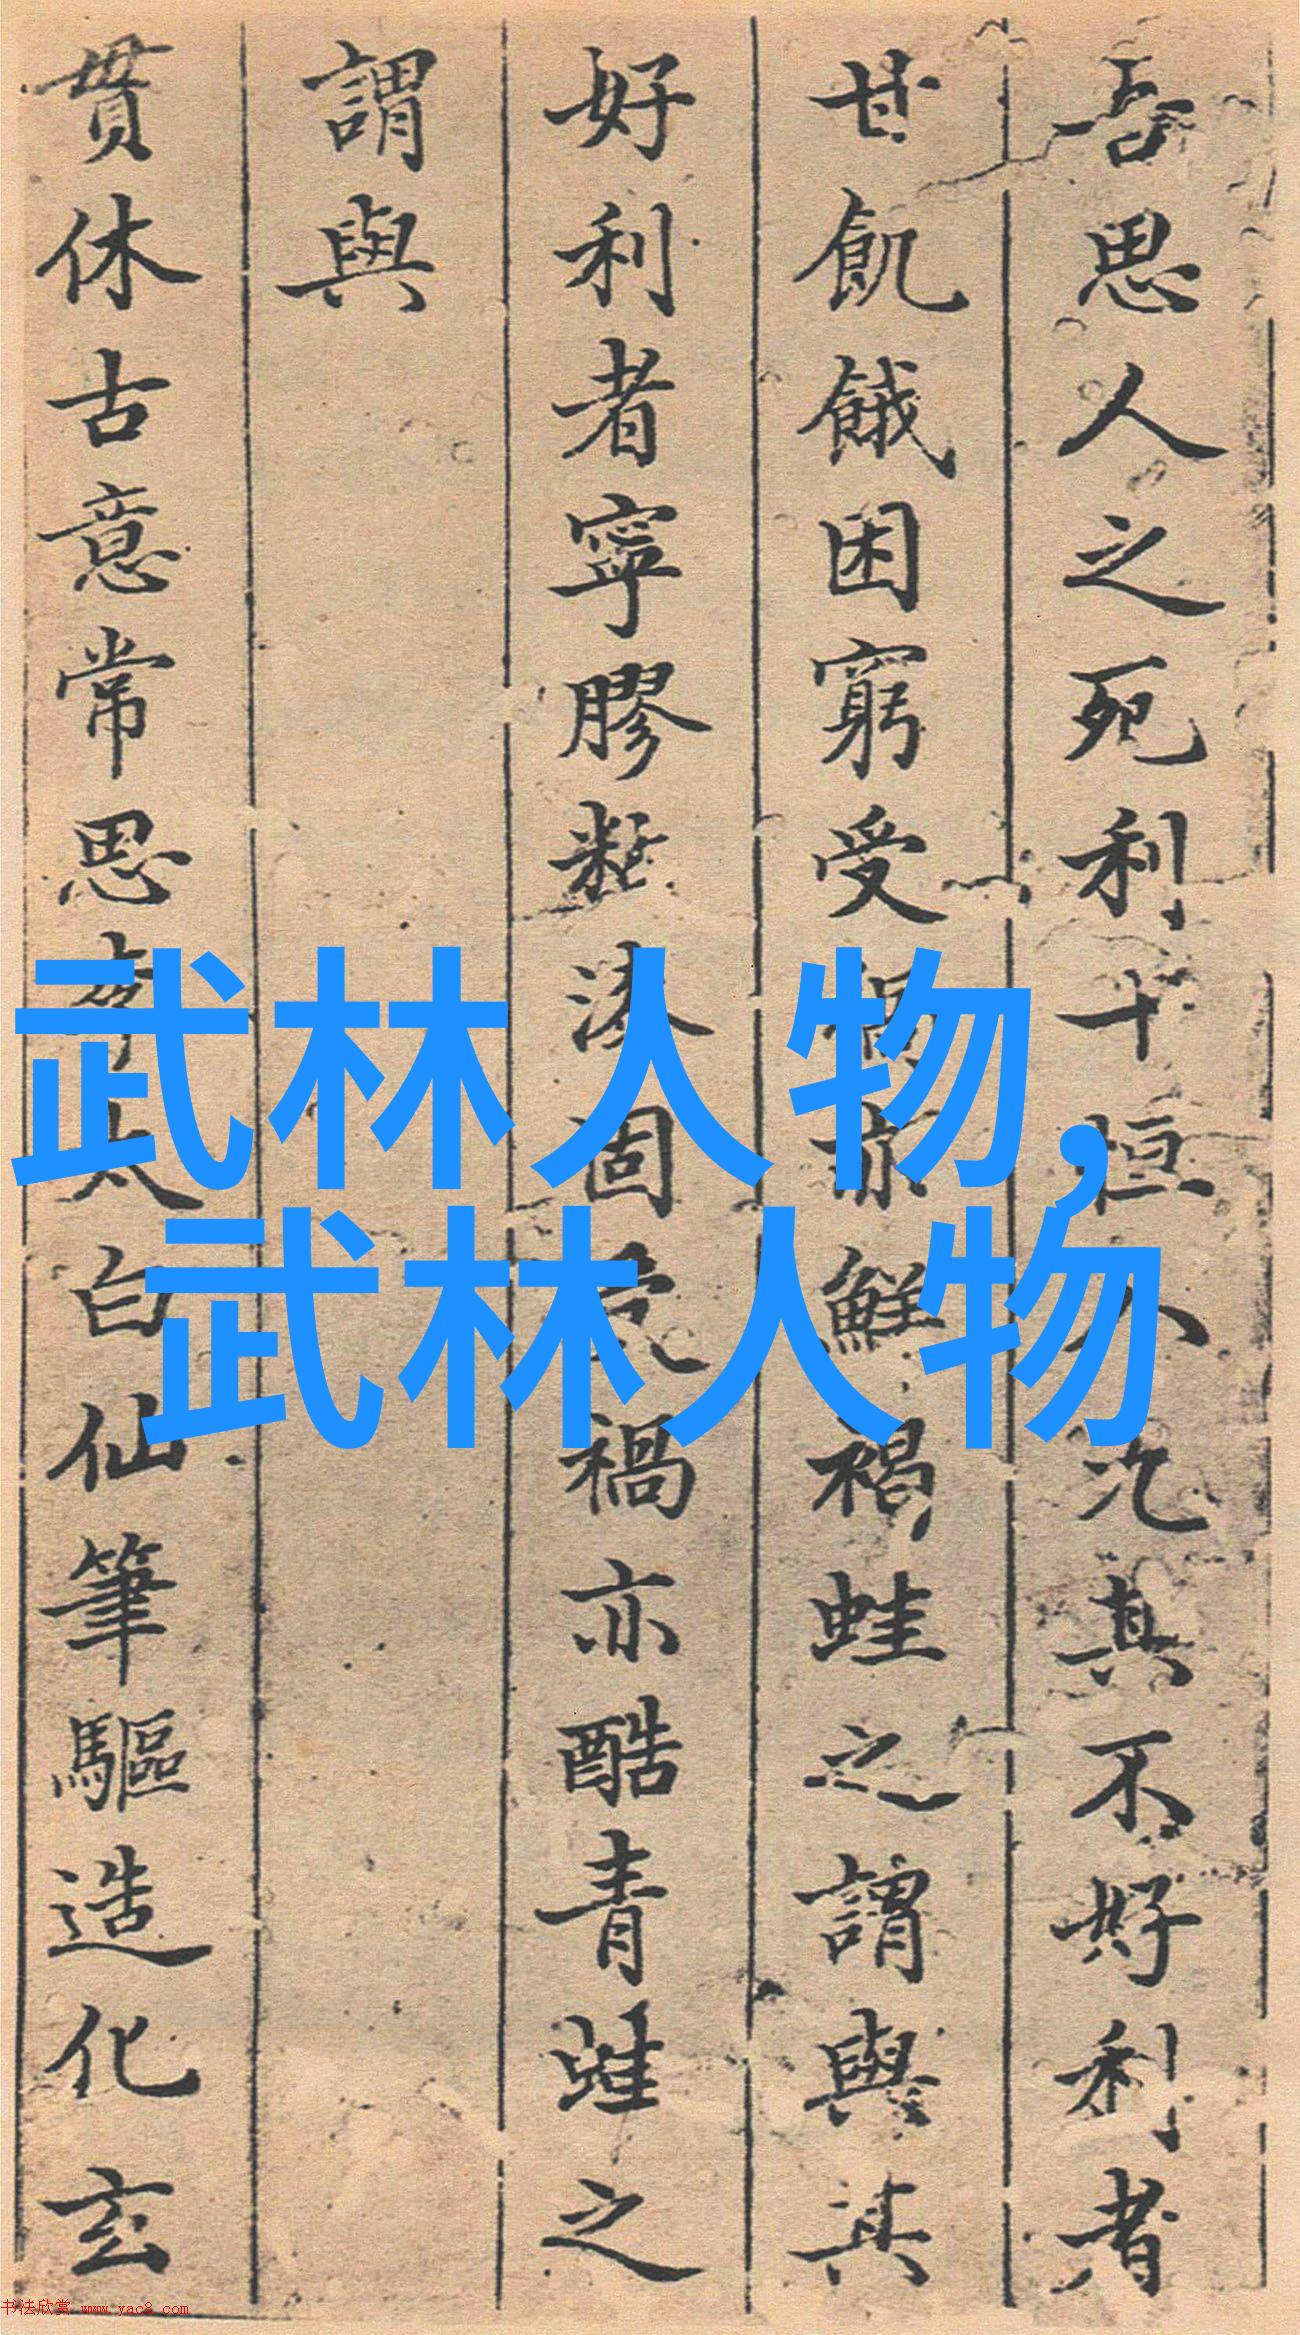 吾思人之死利十恒人汔其不好利者
甘飢餓困窮受禍亦鮮禍蛙之謂與其
好利者寧膠粘漆固受禍亦酷青蛙之
謂與
貫休古意常思李太白仙筆驅造化玄
武林人物,
武林人物
书法欣赏 www.yac8.com